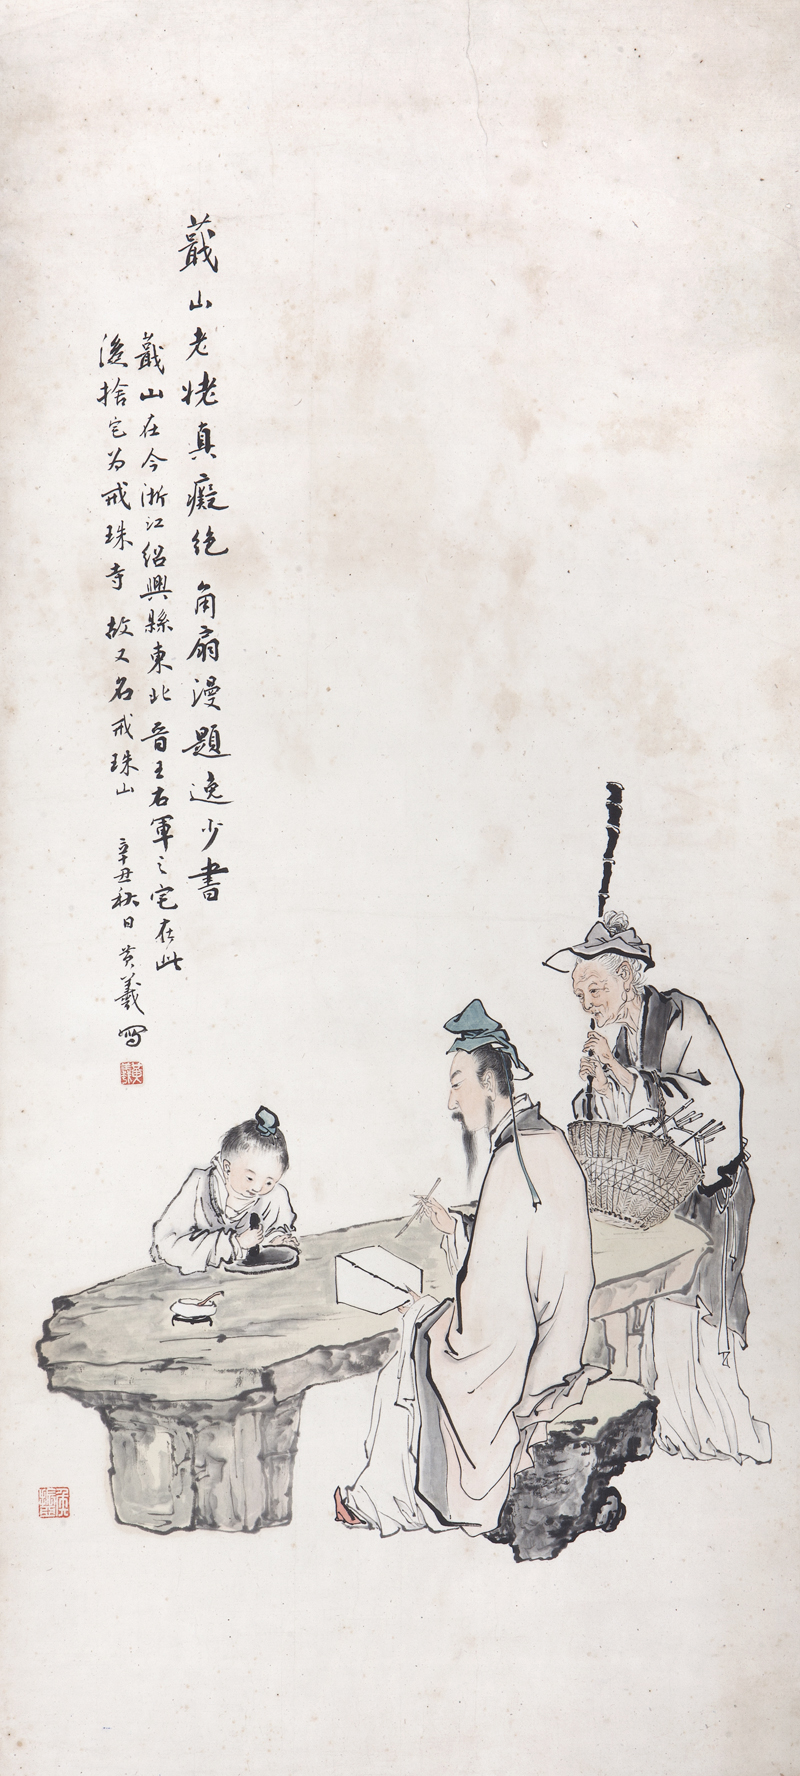 蕺山老姥真癡絕角扇漫題逸少書
蕺山在今浙江紹興縣東北晉王右軍之宅在此
後捨宅为戒珠寺故又名戒珠山
辛丑秋日黄羲寫
黃羲